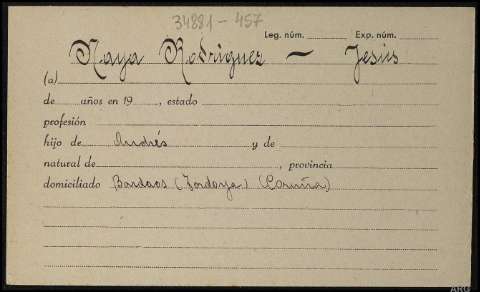 34881-457
Leg. núm. Exp. núm.
Naya Rodriguez - Jesús
(a)
de años en 19 , estado
profesión
hijo de Andrés y de
natural de , provincia
domiciliado Bardaos (Tordoya) (Coruña)
ARG